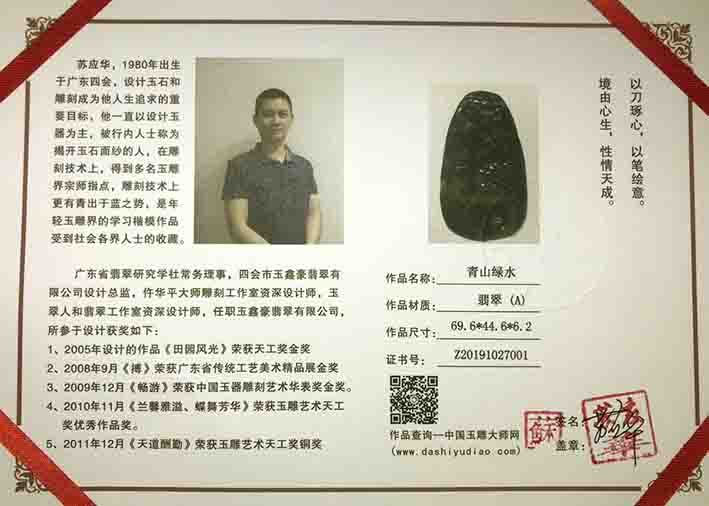 苏应华，1980年出生
于广东四会，设计玉石和
雕刻成为他人生追求的重
要目标，他一直以设计玉
器为主，被行内人士称为
揭开玉石面纱的人，在雕
刻技术上，得到多名玉雕
界宗师指点，雕刻技术上
更有青出于蓝之势，是年
轻玉雕界的学习楷模作品
受到社会各界人士的收藏。
广东省翡翠研究学社常务理事，四会市玉鑫豪翡翠有
限公司设计总监，仵华平大师雕刻工作室资深设计师，玉
翠人和翡翠工作室资深设计师，任职玉鑫豪翡翠有限公司，
所参于设计获奖如下：
1、2005年设计的作品《田园风光》荣获天工奖金奖
2、2008年9月《搏》荣获广东省传统工艺美术精品展金奖
3、2009年12月《畅游》荣获中国玉器雕刻艺术华表奖金奖。
4、2010年11月《兰馨雅溢、蝶舞芳华》荣获玉雕艺术天工
奖优秀作品奖。
5、2011年12月《天道酬勤》荣获玉雕艺术天工奖铜奖
以刀琢心，以笔绘意。
境由心生，性情天成。
作品名称： 青山绿水
作品材质： 翡翠（A）
作品尺寸： 69.6*44.6*6.2
证书号： Z20191027001
作品查询—中国玉雕大师网
(www.dashiyudiao.com)
签名：
盖章：